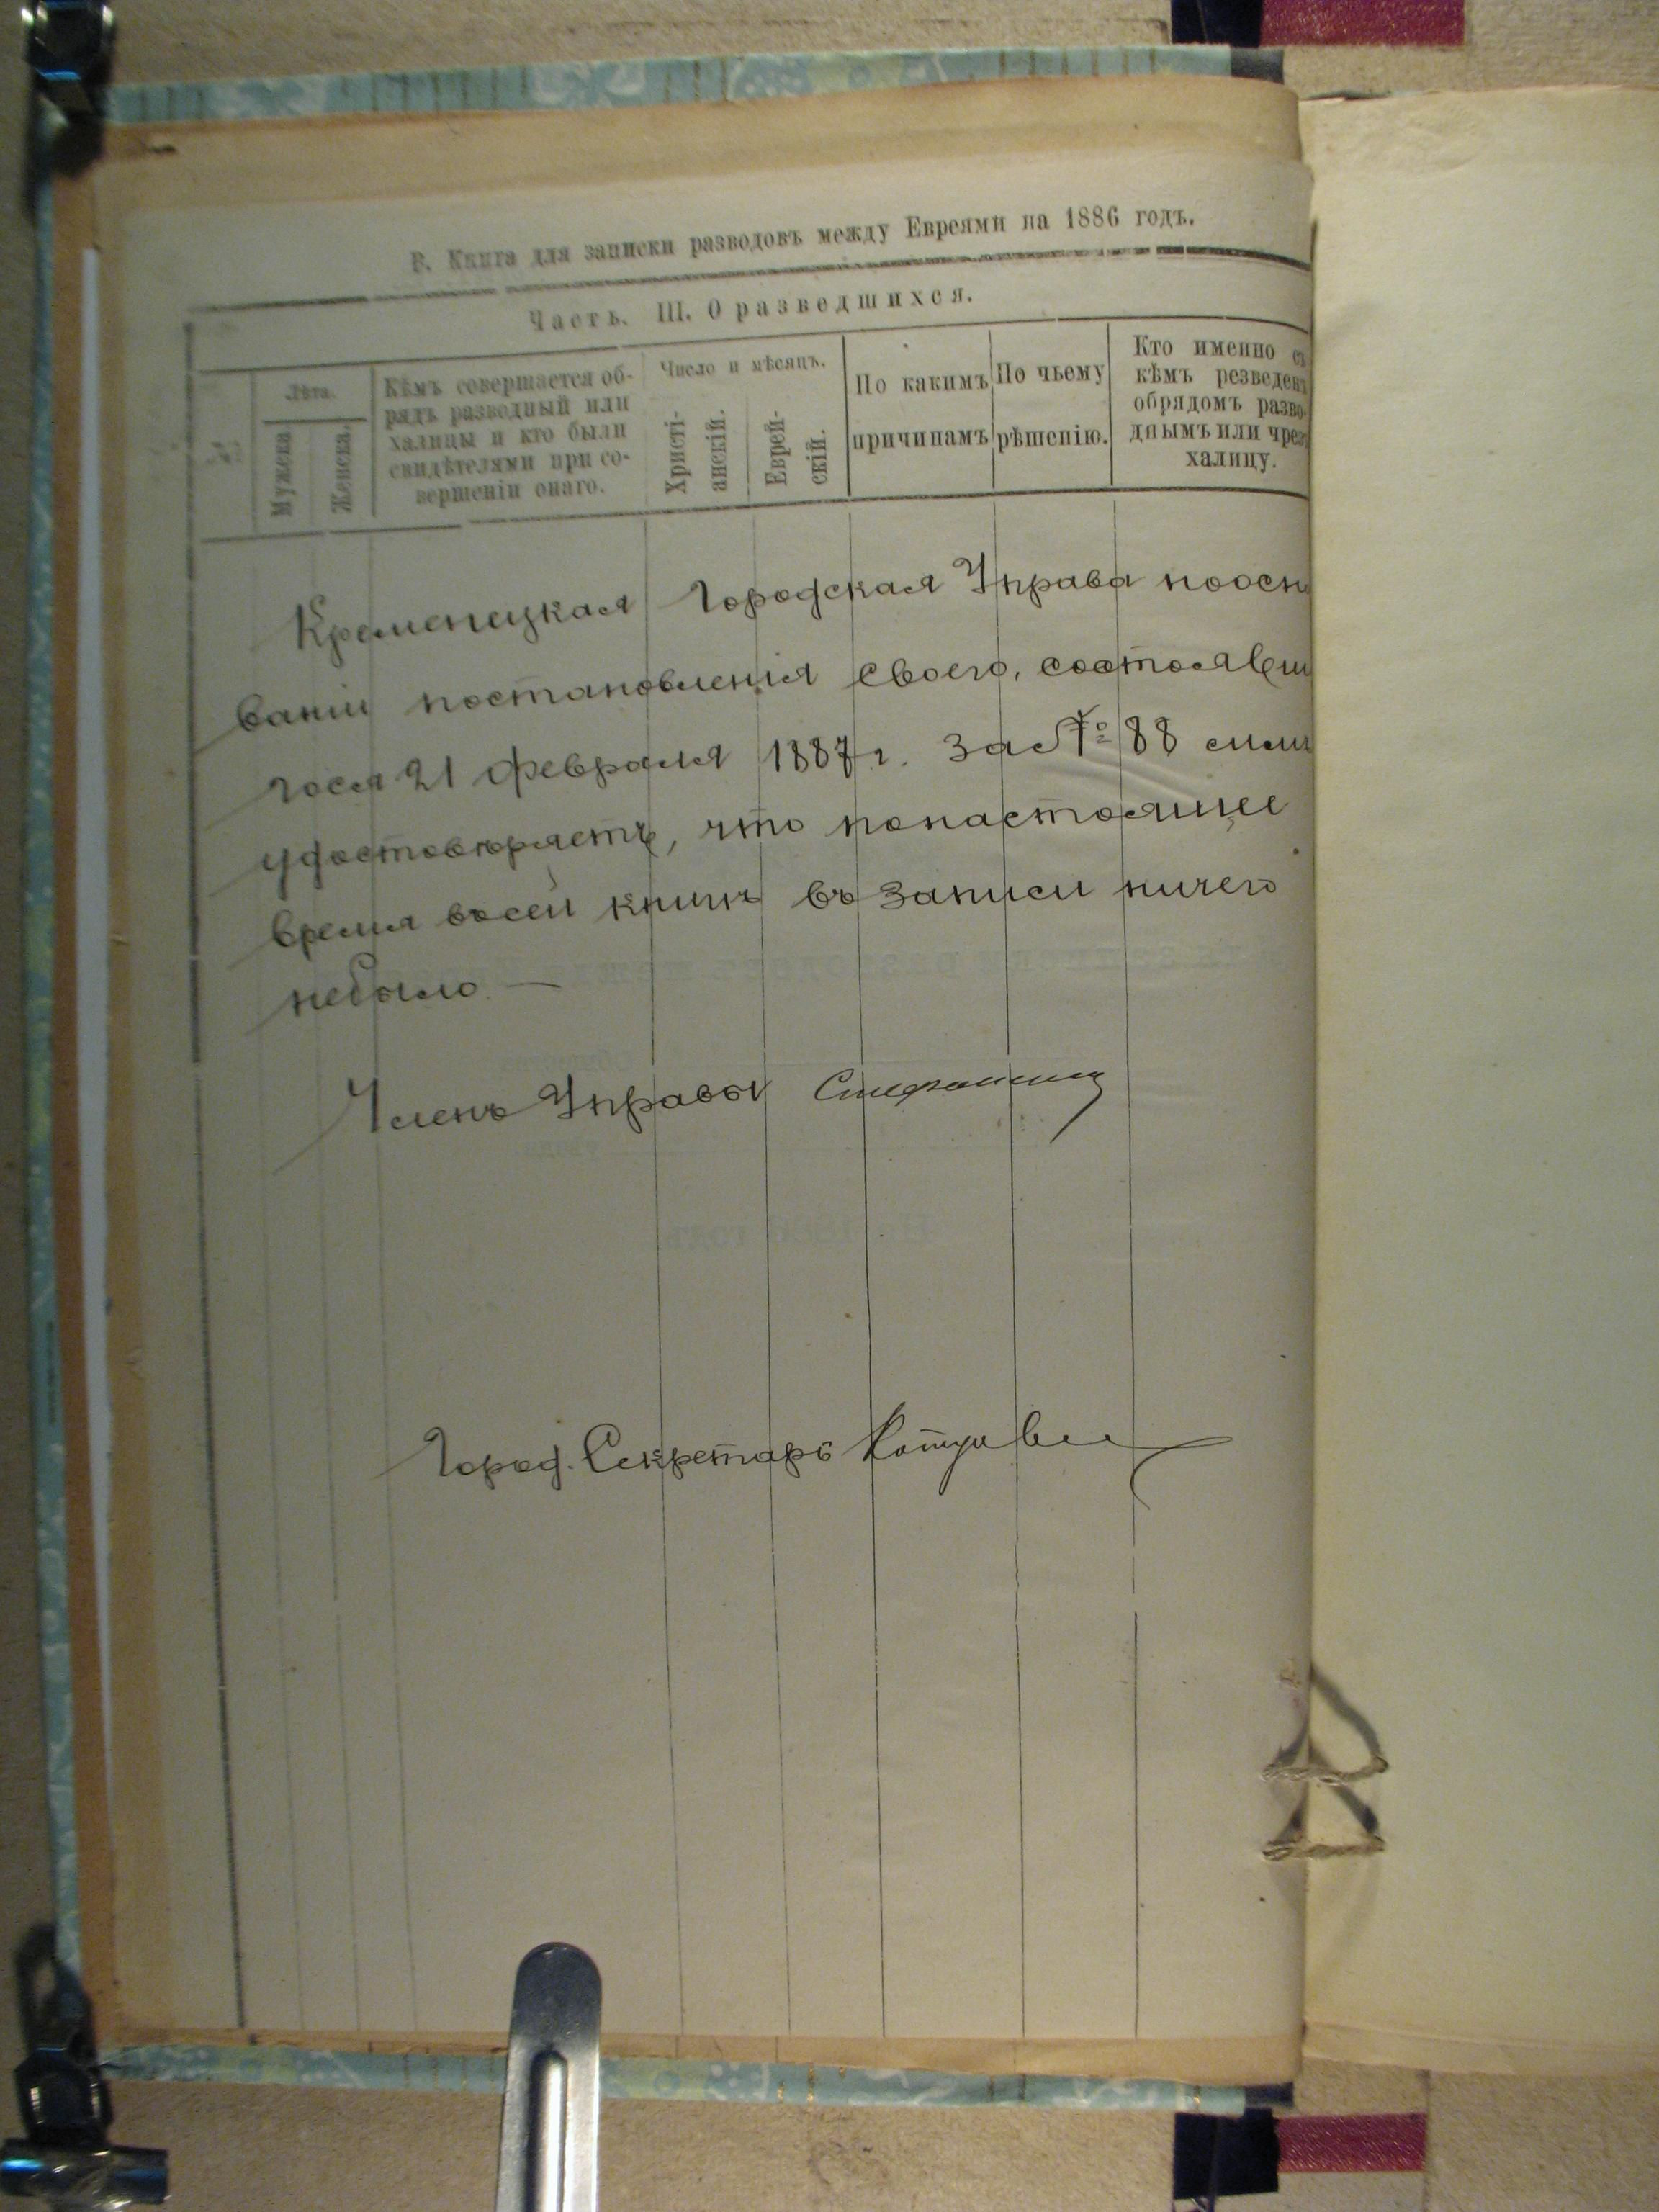 В. Книга для записки разводовъ между Евреями на 1886 годъ.
Часть. III. О разведшихся.
Лѣта.
Мужеска.
Женска.
Кѣмъ совершается об-
рядъ разводный или
халицы и кто были
свидѣтелями при со-
вершеніи онаго.
Число и мѣсяцъ.
Христі-
анскій.
Еврей-
скій.
По какимъ
причинамъ
По чьему
рѣшенію.
Кто именно съ
кѣмъ резведенъ
обрядомъ разво-
днымъ или чрезъ
халицу.
Кременецкая Городская Управа поосно
ваніи постановленія своего, состоявш
гося 21 Февраля 1887 г. за № 88 симъ
удостовѣряетъ, что понастоящее
время восей книгѣ въ записи ничего
небыло —
Членъ Управы
Город. Секретарь